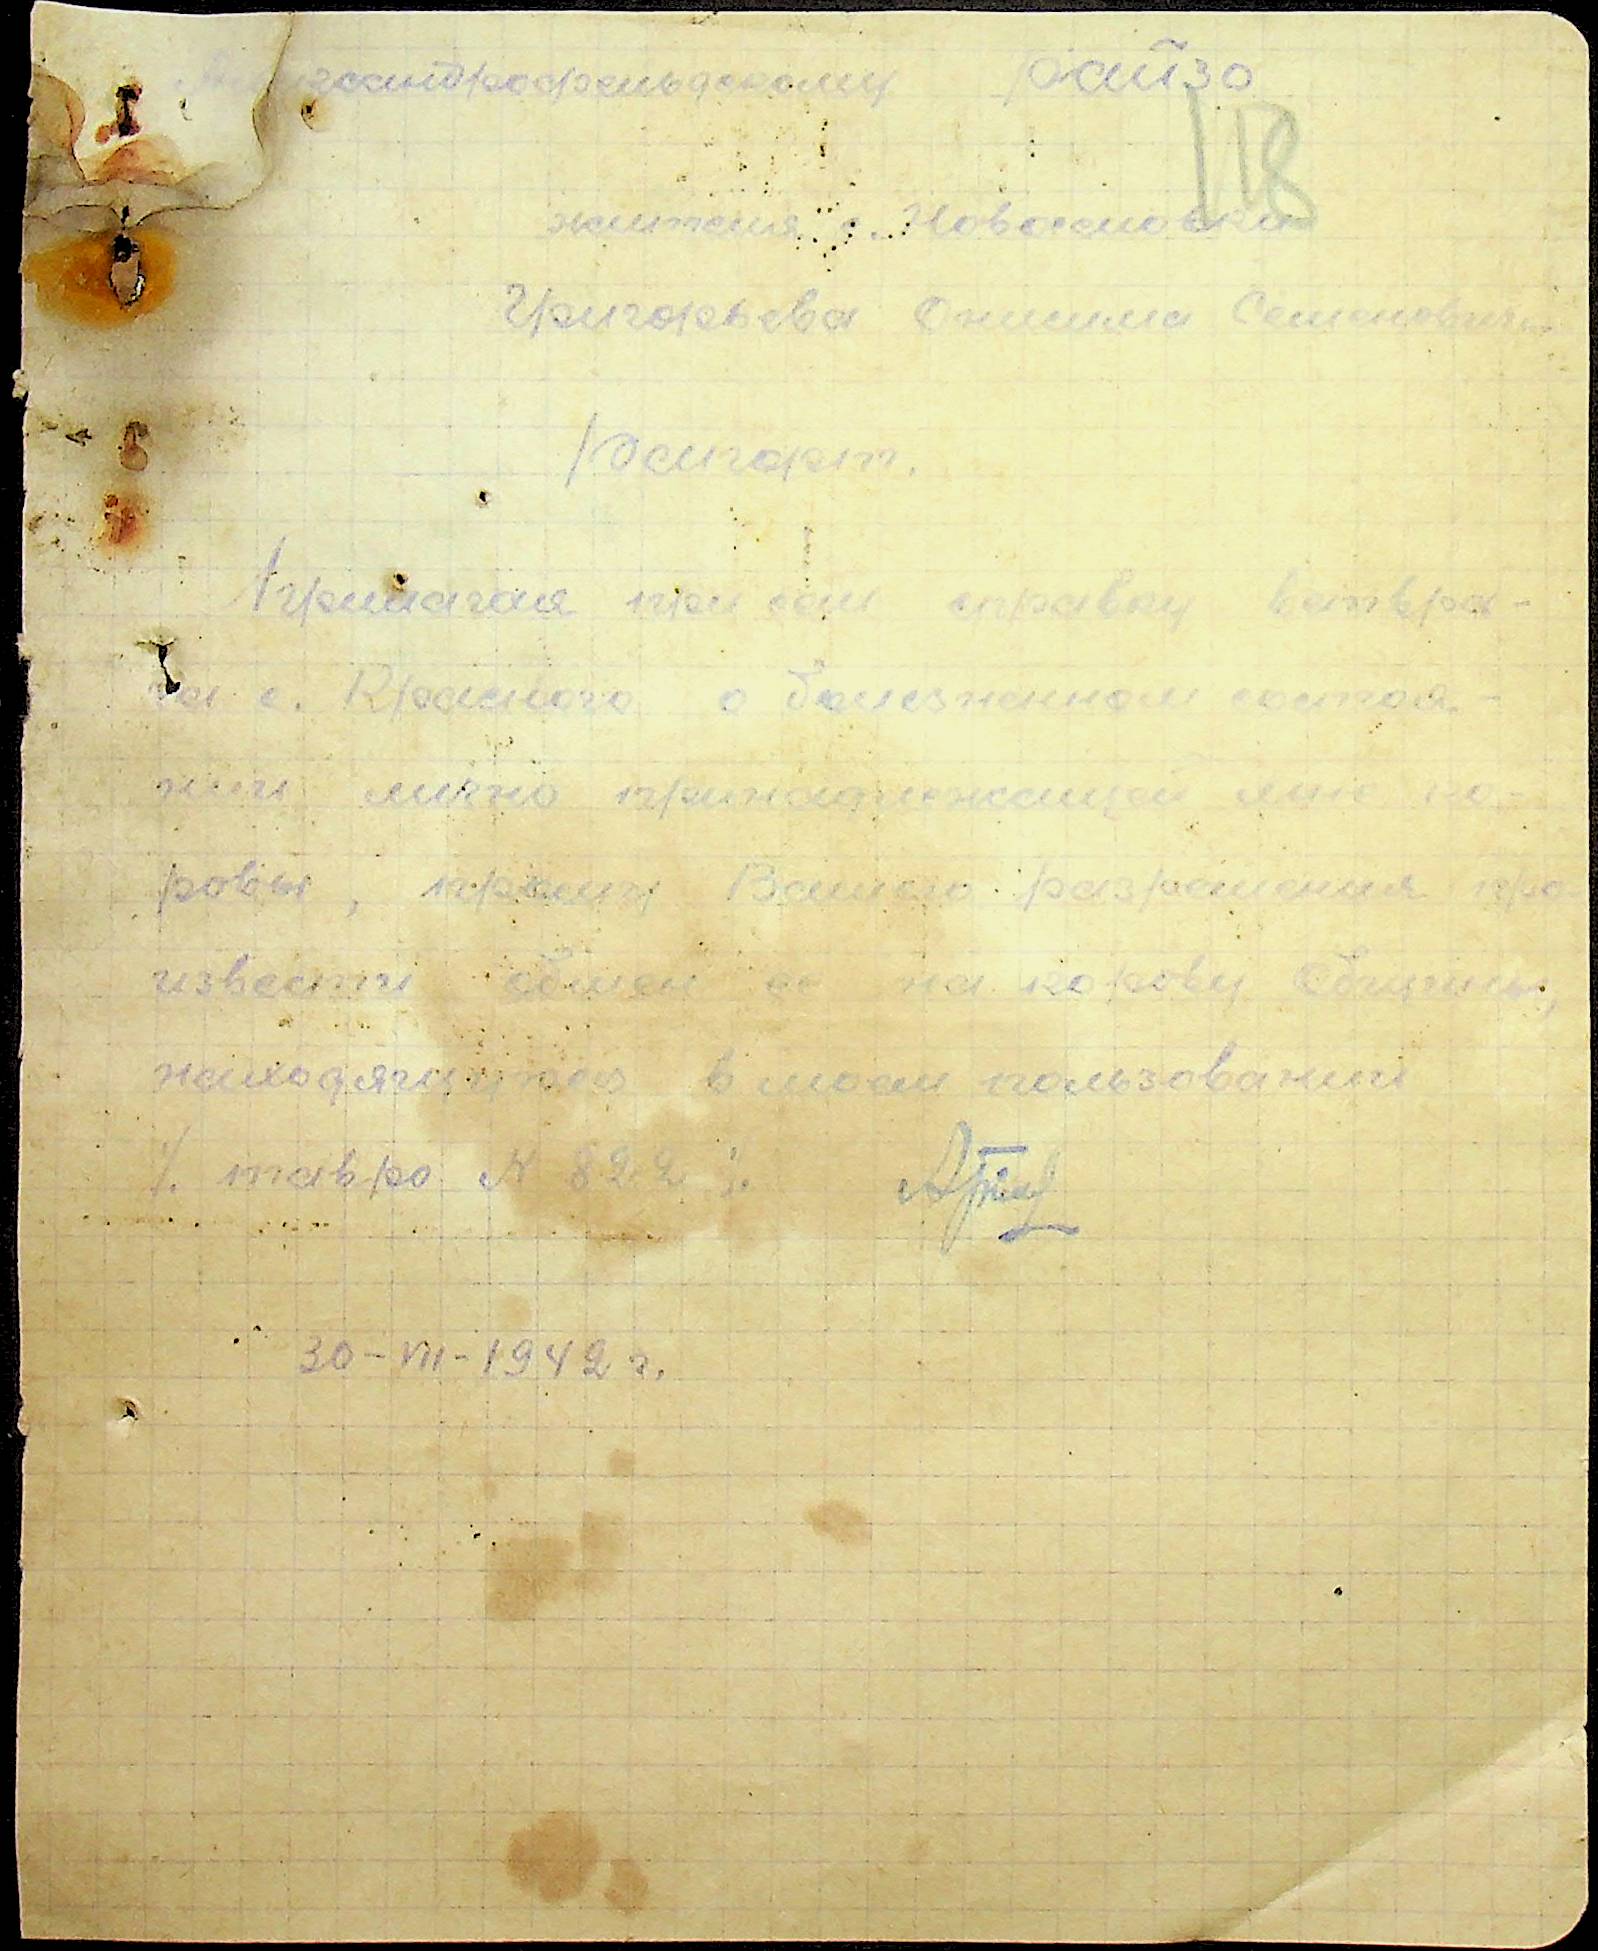 Александрофельдскому райзо
118
жителя с. Новоселовки
Григорьева Онисима Семеновича
Рапорт.
Прилагая при сем справку ветвра-
ча с. Красного о болезненном состоя-
нии лично принадлежащей мне ко-
ровы, прошу Вашего разрешения про-
извести обмен ее на корову Общины,
находящуюся в моем пользовании
/. тавро N 822 ./.
30-VII-1942 г.